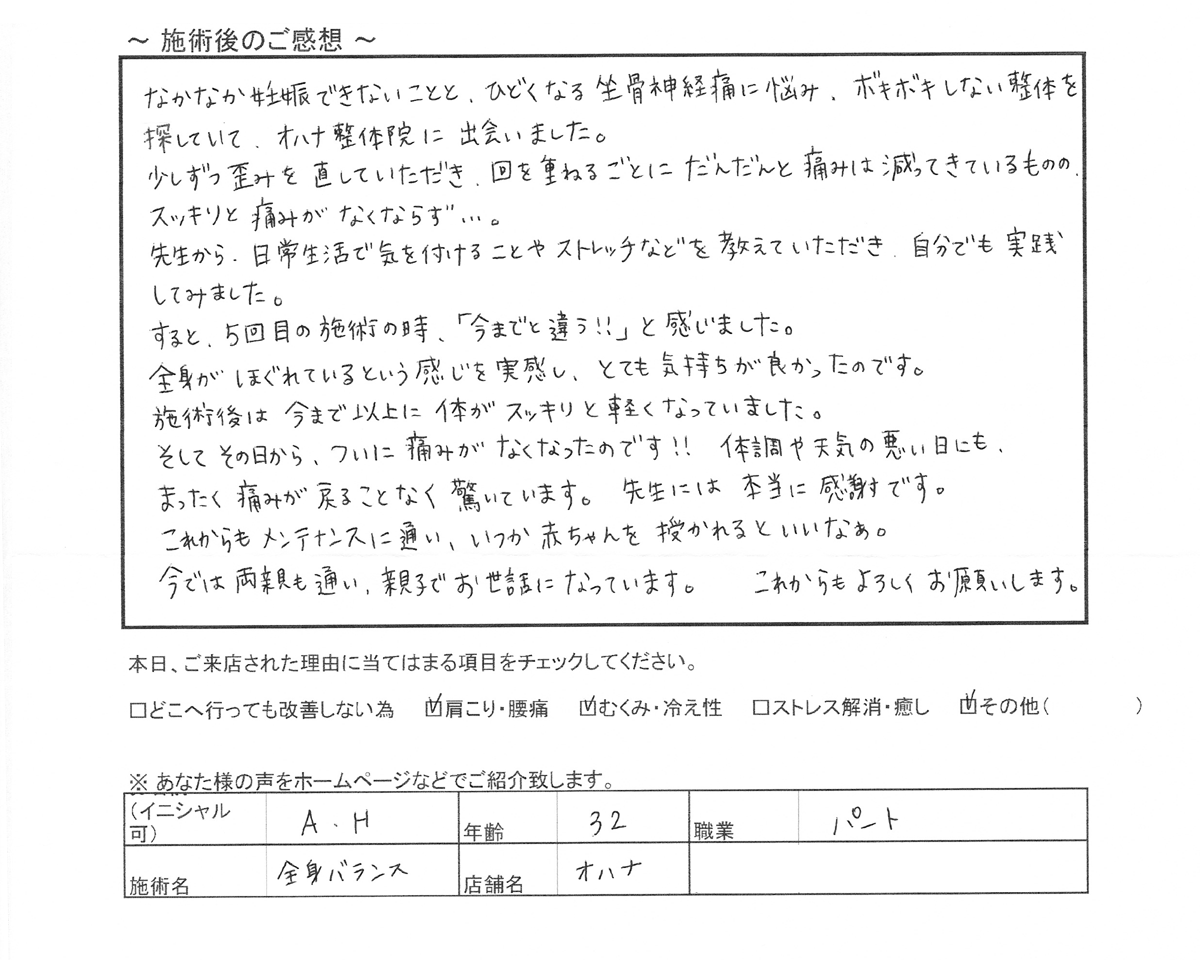 ～ 施術後のご感想 ～
なかなか妊娠できないことと、ひどくなる坐骨神経痛に悩み、ボキボキしない整体を
探していて、オハナ整体院に出会いました。
少しずつ歪みを直していただき、回を重ねるごとにだんだんと痛みは減ってきているものの、
スッキリと痛みがなくならず…。
先生から、日常生活で気を付けることやストレッチなどを教えていただき、自分でも実践
してみました。
すると、5回目の施術の時、「今までと違う!!」と感じました。
全身がほぐれているという感じを実感し、とても気持ちが良かったのです。
施術後は今まで以上に体がスッキリと軽くなっていました。
そしてその日から、ついに痛みがなくなったのです!! 体調や天気の悪い日にも、
まったく痛みが戻ることなく驚いています。 先生には本当に感謝です。
これからもメンテナンスに通い、いつか赤ちゃんを授かれるといいなぁ。
今では両親も通い、親子でお世話になっています。 これからもよろしくお願いします。
本日、ご来店された理由に当てはまる項目をチェックしてください。
□どこへ行っても改善しない為 ☑肩こり・腰痛 ☑むくみ・冷え性 □ストレス解消・癒し ☑その他( )
※ あなた様の声をホームページなどでご紹介致します。
(イニシャル可) A.H 年齢 32 職業 パート
施術名 全身バランス 店舗名 オハナ